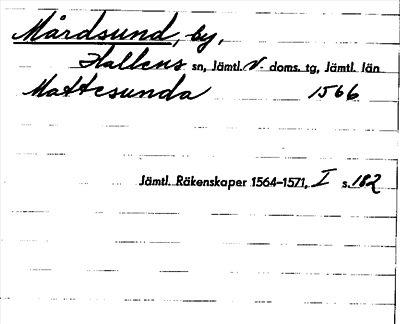 Mårdsund, by,
Hallens sn, Jämtl. V. doms. tg, Jämtl. län
Mattesunda 1566
Jämtl. Räkenskaper 1564–1571, I s. 182